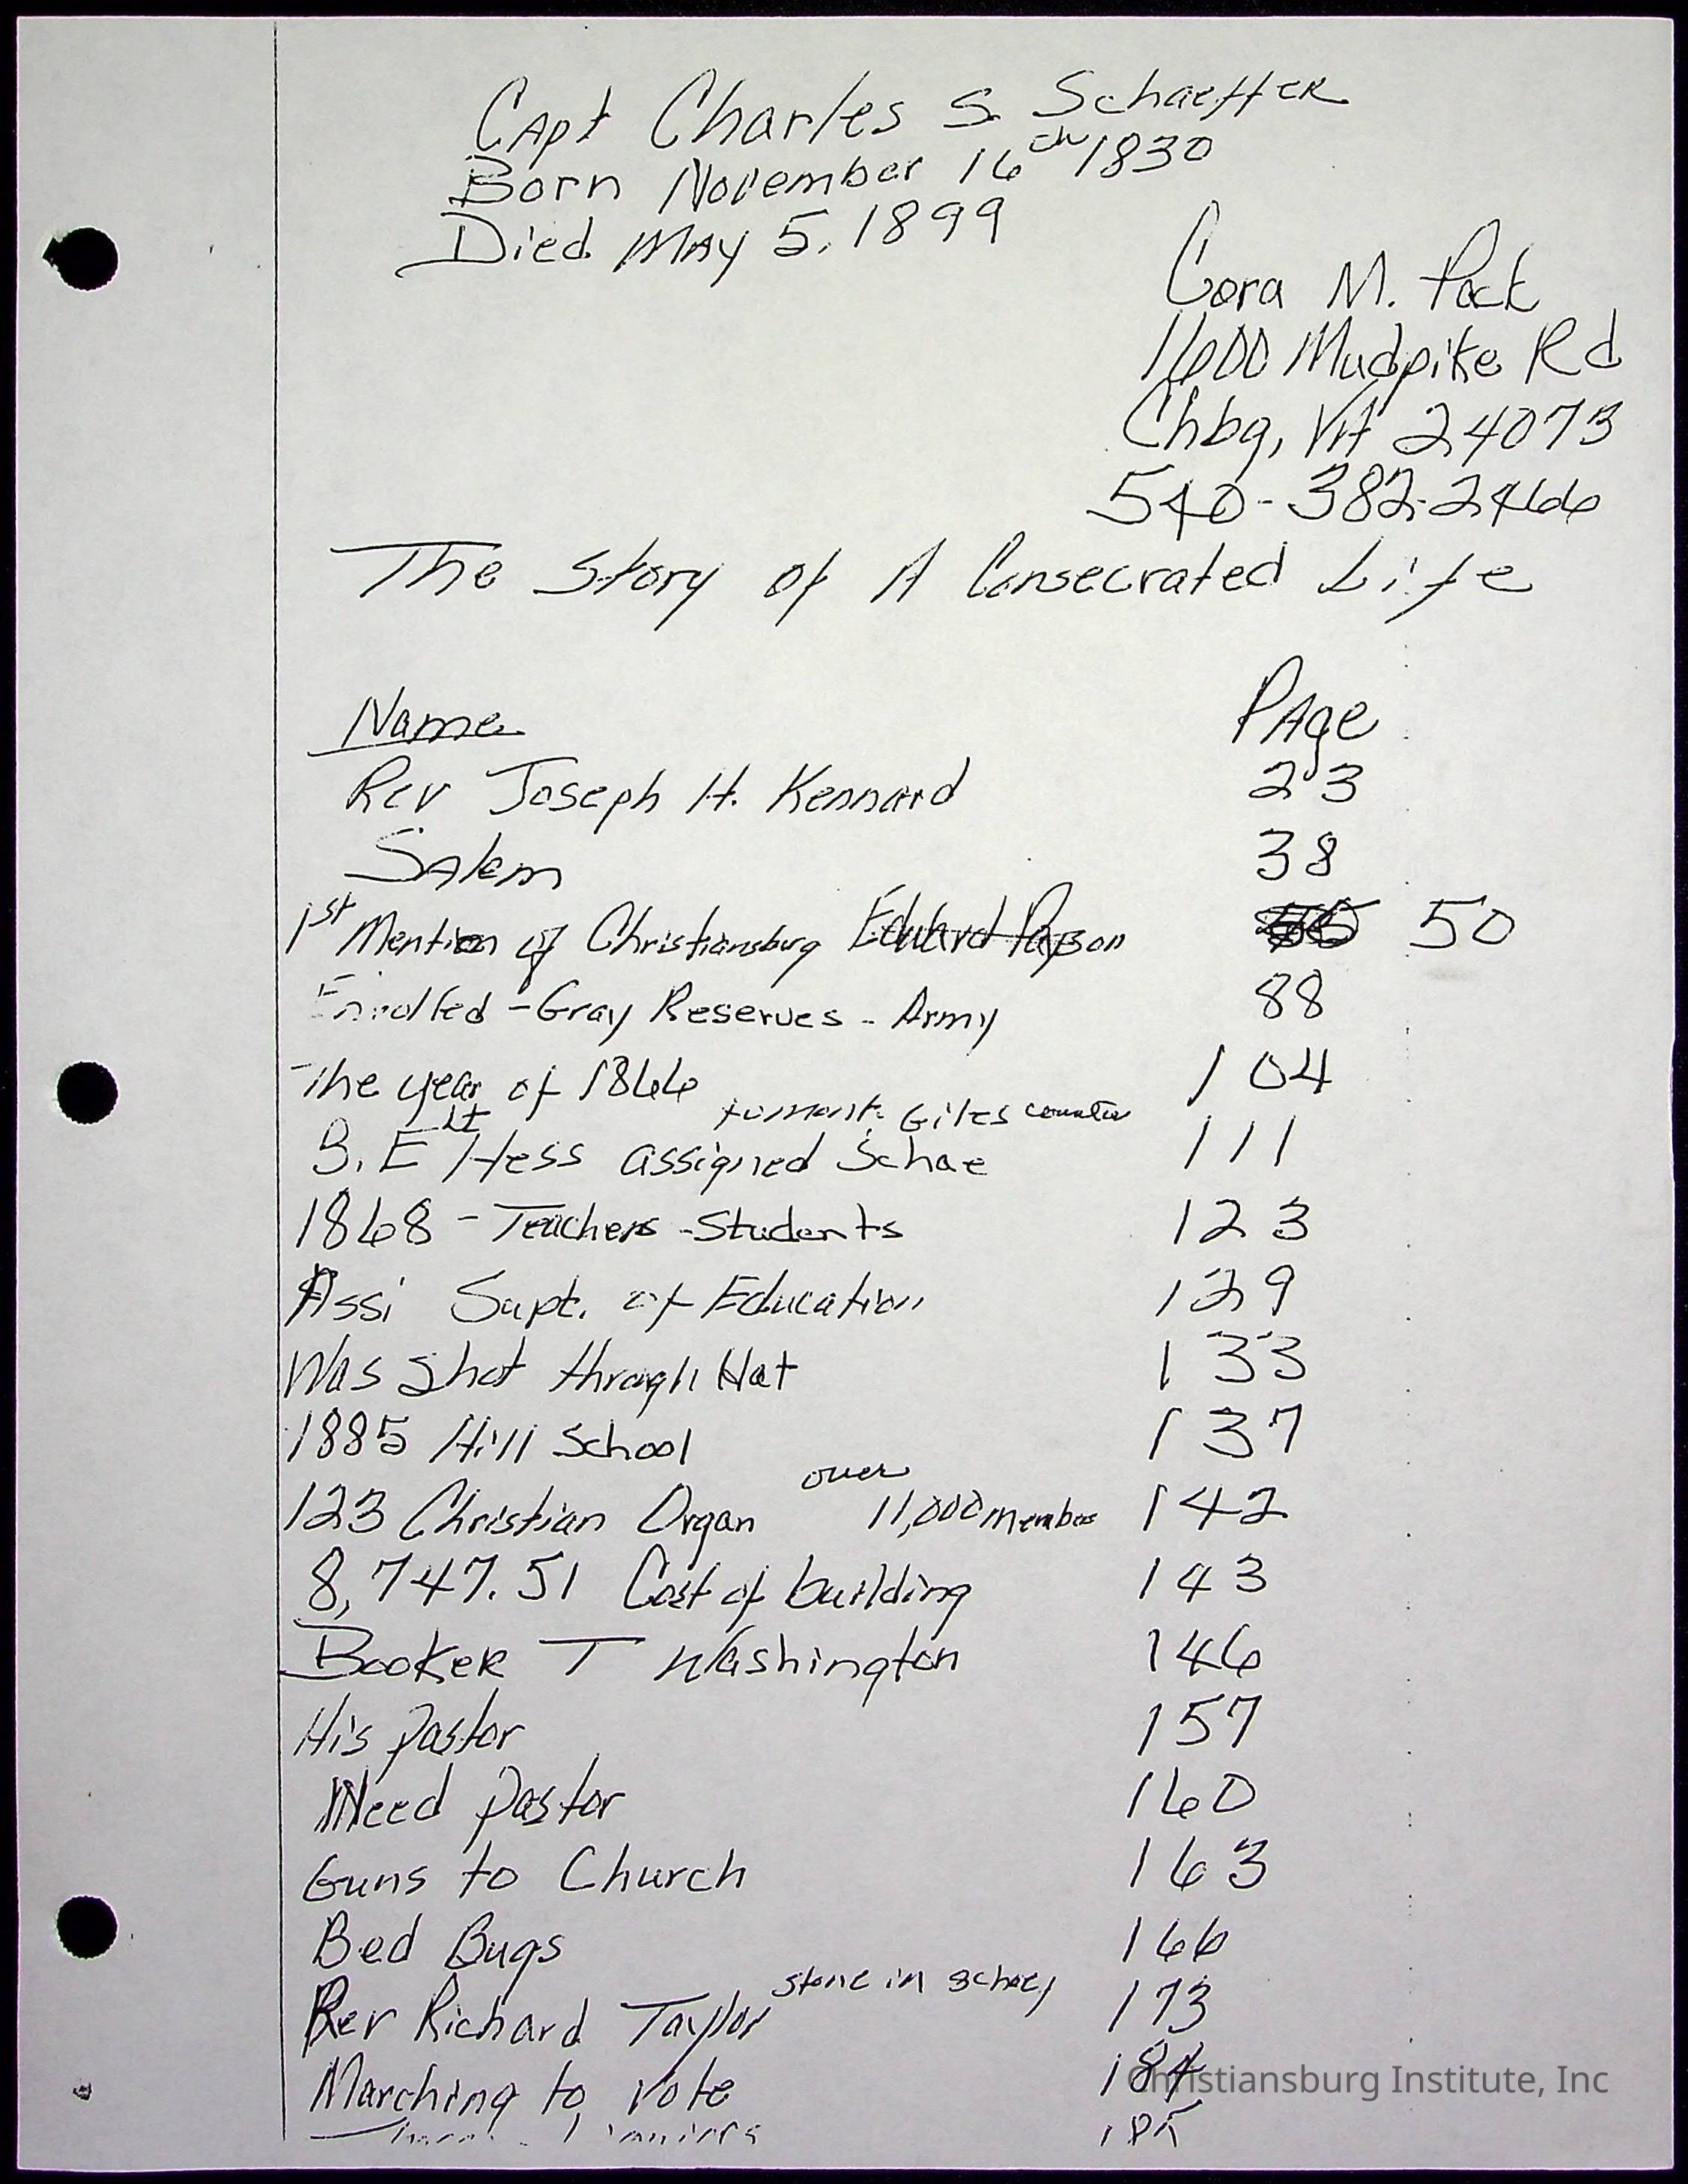 Capt Charles S. Schaeffer
Born November 16th 1830
Died May 5, 1899
Cora M. Pack
1600 Mudpike Rd
Chbg, VA 24073
540-382-2466
The Story of A Consecrated Life
Name Page
Rev Joseph H. Kennard 23
Salem 38
1st Mention of Christiansburg Edward Payson 50
Enrolled - Gray Reserves - Army 88
The year of 1866 104
to mont. Giles counties
B. E Lt Hess assigned Schae 111
1868 - Teachers - Students 123
Assi Supt. of Education 129
Was shot through Hat 133
1885 Hill School 137
123 Christian Organ over 11,000 member 142
8,747.51 Cost of building 143
Booker T Washington 146
His pastor 157
Need pastor 160
Guns to Church 163
Bed Bugs 166
Rev Richard Taylor stone in 173
Marching to Vote 184
185
Christiansburg Institute, Inc